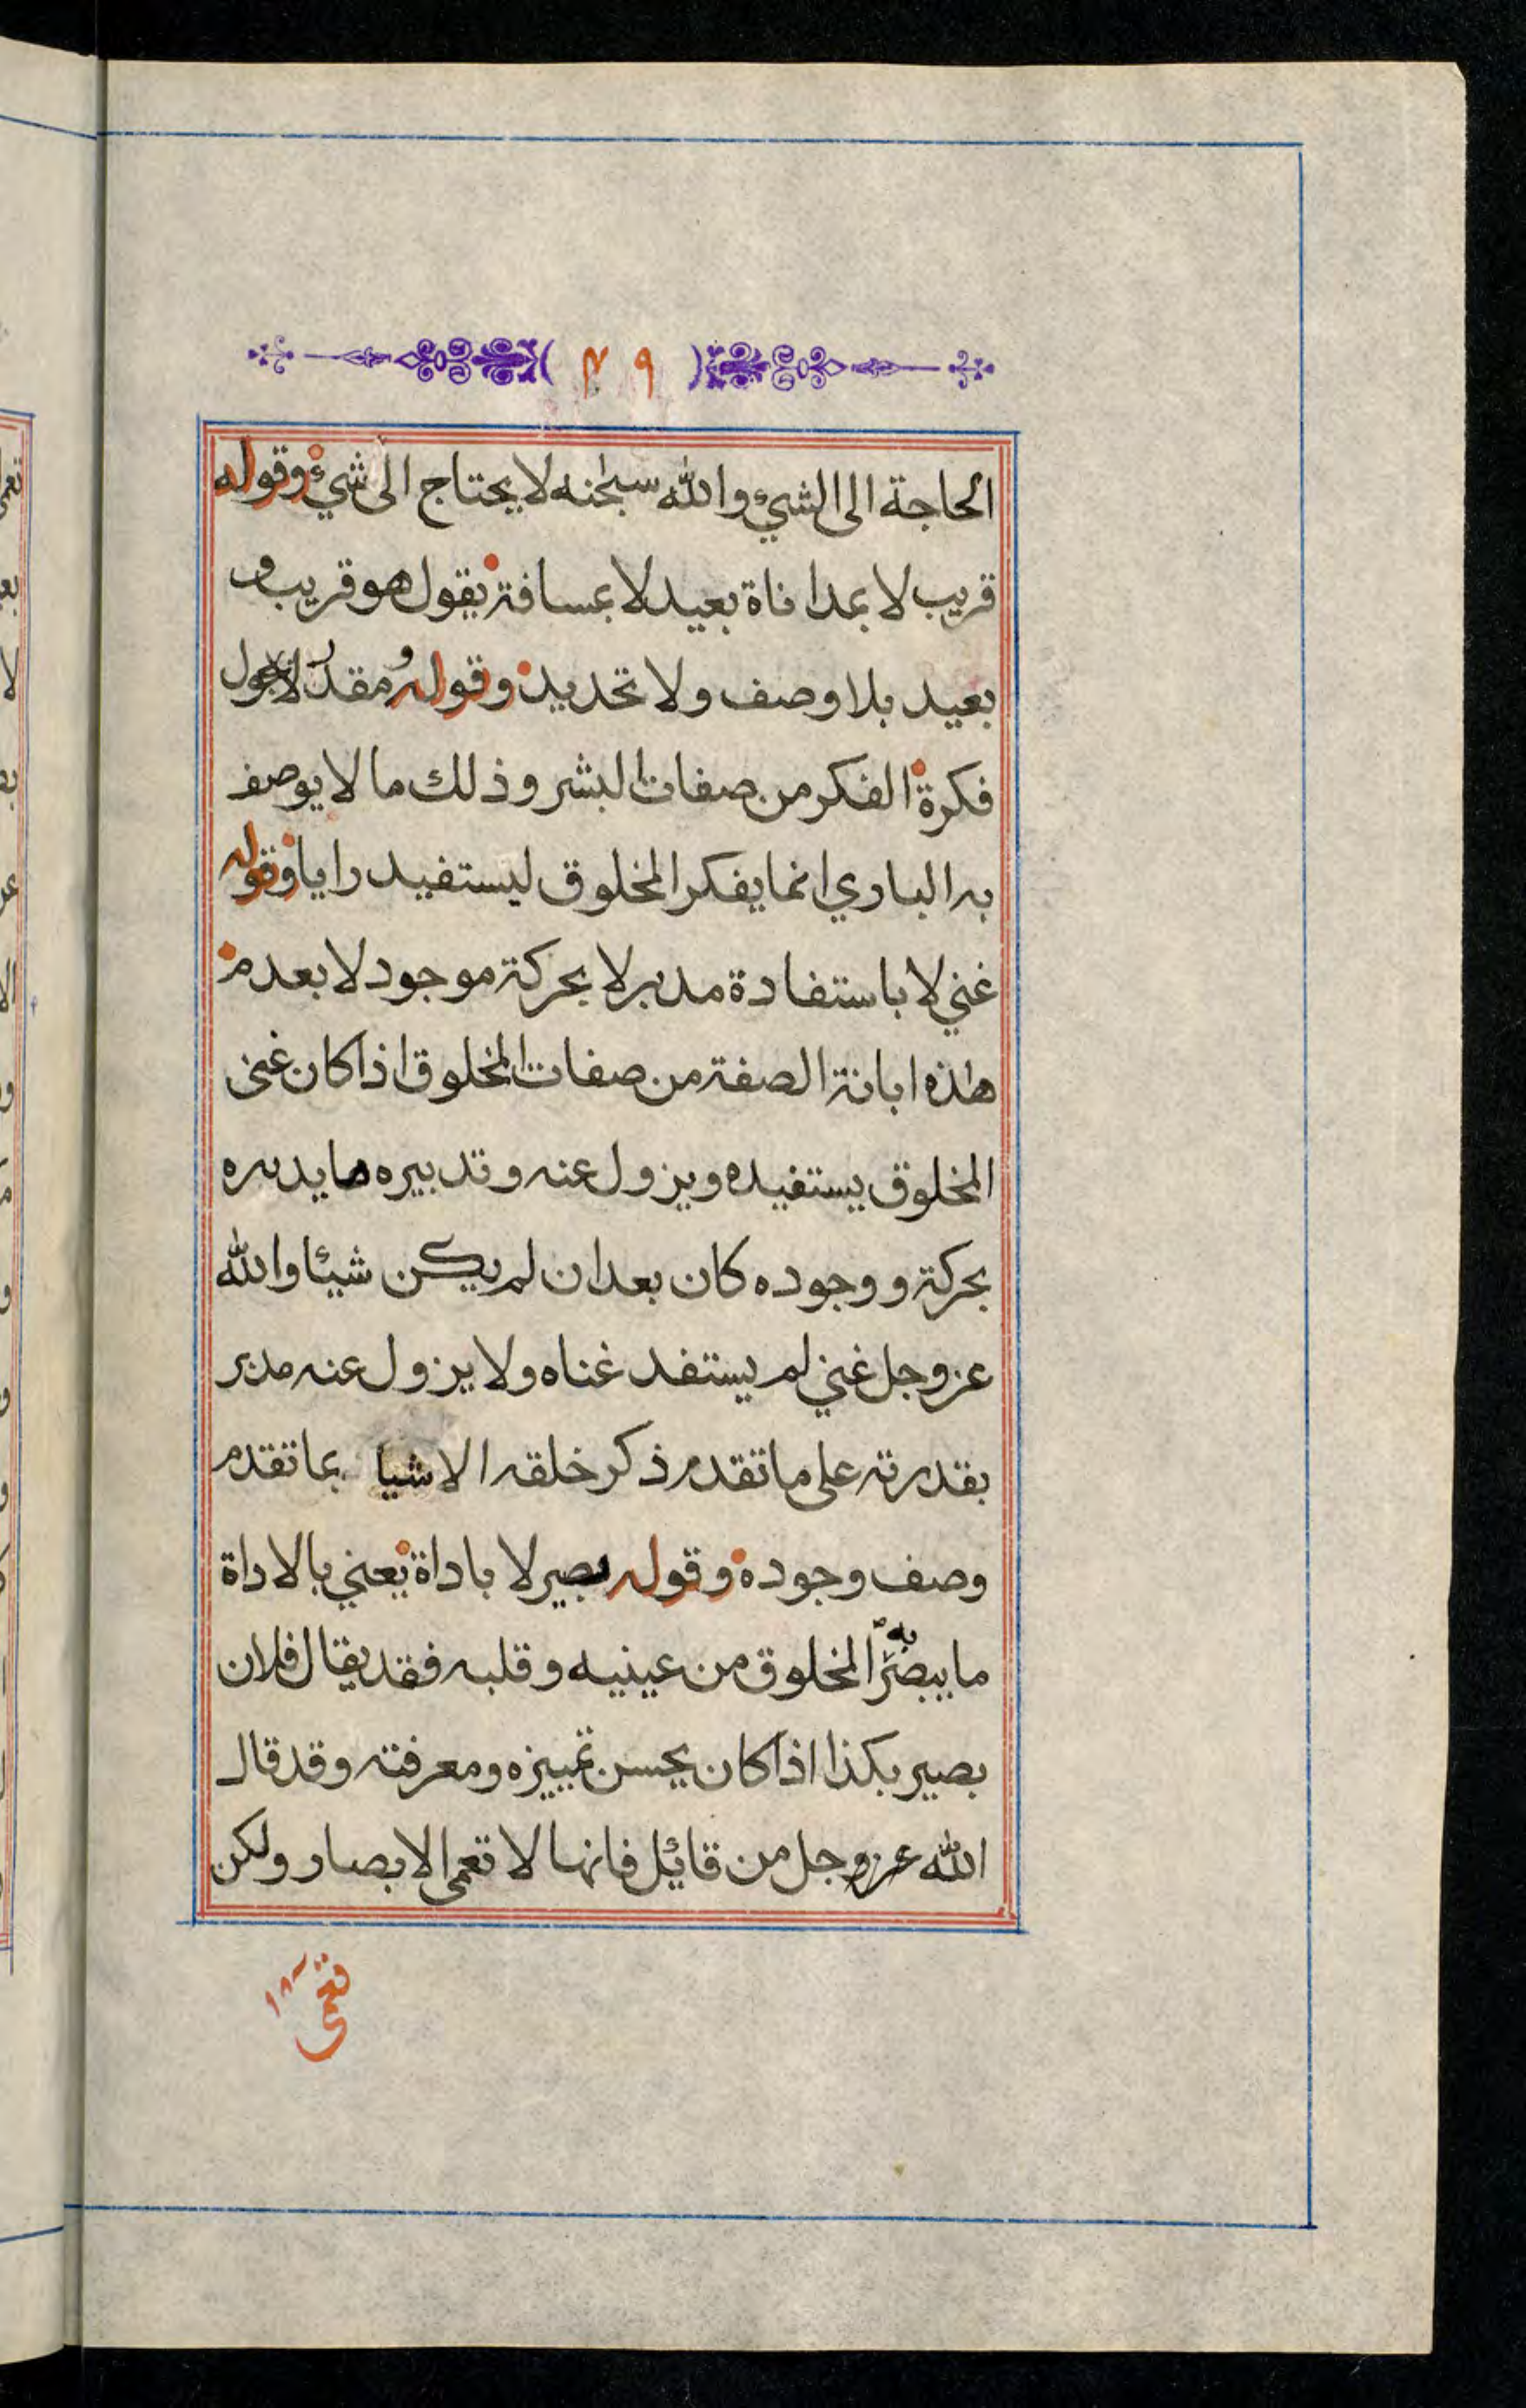 ٤٩
الحاجة الى الشيء والله سبحنه لا يحتاج الى شيء وقوله
قريب لا بمداناة بعيد لا بمسافة يقول هو قريب و
بعيد بلا وصف ولا تحديد وقوله ومقدر لا بجول
فكرة الفكر من صفات البشر وذلك ما لا يوصف
به الباري انما يفكر المخلوق ليستفيد رايا وقوله
غني لا باستفادة مدبر لا بحركة موجود لا بعدم
هذه ابانة الصفة من صفات المخلوق اذا كان غنى
المخلوق يستفيده ويزول عنه وتدبيره ما يدبره
بحركة ووجوده كان بعد ان لم يكن شيئا والله
عز وجل غني لم يستفد غناه ولا يزول عنه مدبر
بقدرته على ما تقدم ذكر خلقه الاشيا بما تقدم
وصف وجوده وقوله بصير لا باداة يعني بالاداة
ما يبصر به المخلوق من عينيه وقلبه فقد يقال فلان
بصير بكذا اذا كان يحسن تمييزه ومعرفته وقد قال
الله عز وجل من قائل فانها لا تعمى الابصار ولكن
تعمى